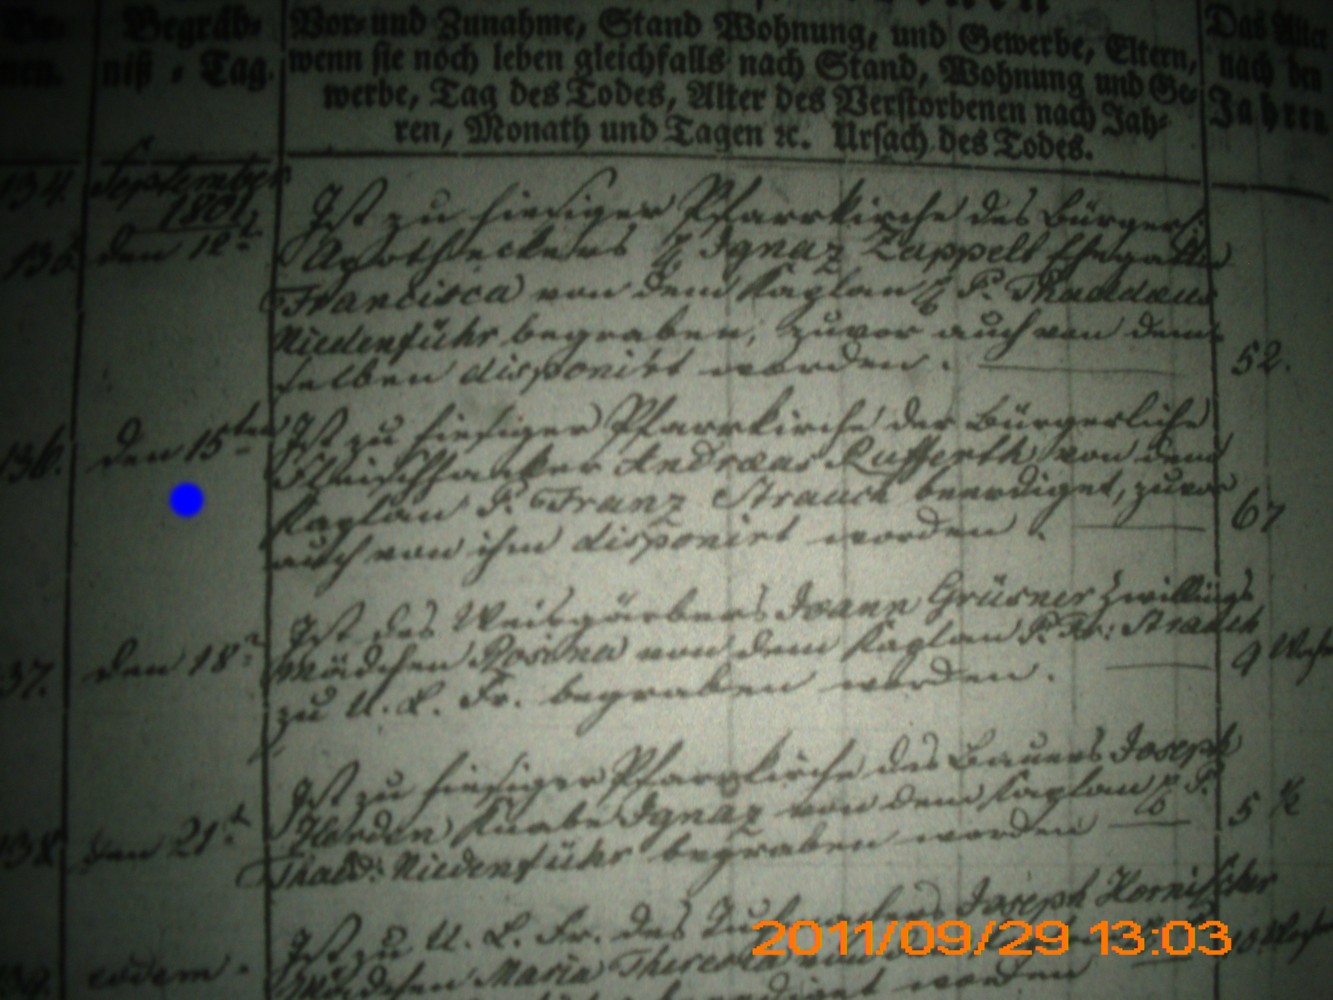 Begräb-
niß-Tag.
Vor- und Zunahme, Stand Wohnung, und Gewerbe, Eltern,
wenn sie noch leben gleichfalls nach Stand, Wohnung und Ge-
werbe, Tag des Todes, Alter des Verstorbenen nach Jah-
ren, Monath und Tagen ꝛc. Ursach des Todes.
Das Alter
nach den
Jahren
134. September
1801
135. den 12t
Ist zu hiesiger Pfarrkirche des Bürgerl:
Apotheckers H Ignaz Zappell Ehegattin
Francisca von dem Kaplan H P. Thaddaeus
Niedenführ begraben, zuvor auch von dem-
selben disponirt worden. 52.
136. den 15ten Ist zu hiesiger Pfarrkirche der Bürgerliche
Fleischhacker Andreas Rufferth von dem
Kaplan P. Franz Strauch beerdiget, zuvor
auch von ihm disponirt worden. 67
Ist des Weisgärbers Joann Grüsner Zwillings
37. den 18t Mädchen Rosina von dem Kaplan P. Fr: Strauch
zu U. L. Fr. begraben worden. 9
Ist zu hiesiger Pfarrkirche des Bauers Joseph
Horden Knabe Ignaz von dem Kaplan H P.
138. den 21t Thadd: Niedenführ begraben worden 5 ½
Ist zu U. L. Fr. des Joseph Hornischer
39. eodem. Mädchen Maria Theresia
worden
2011/09/29 13:03